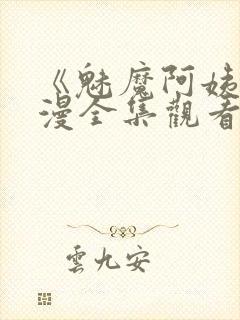 《魅魔阿姨
漫全集觀看
雲九安